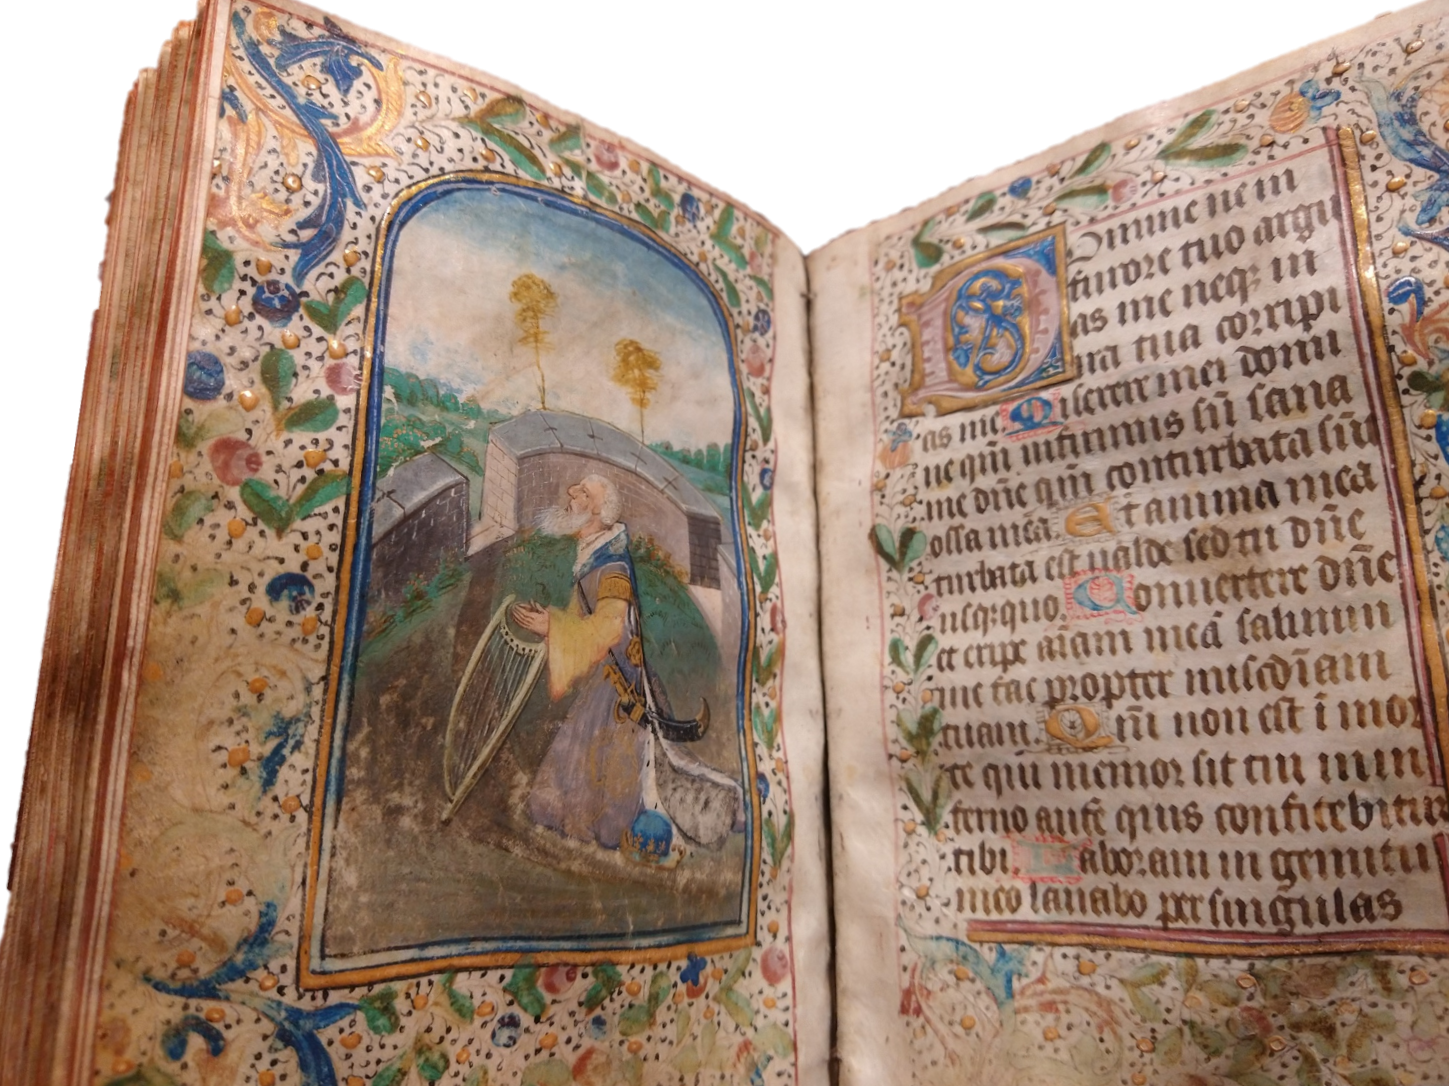 Domine ne in
furore tuo argu
as me neq; in
ira tua corripi
as me. Miserere mei domi
ne qm̄ infirmus sū sana
me dn̄e qm̄ conturbata sūt
ossa mea. Et anima mea
turbata est ualde sed tu dn̄e
usq;quo. Conuertere dn̄e
et eripe aīam meā saluum
me fac propter misc̄diam
tuam. Qm̄ non est ī mor
te qui memor sit tui in in
ferno autē quis confitebitur
tibi Laboraui in gemitu
meo lauabo per singulas